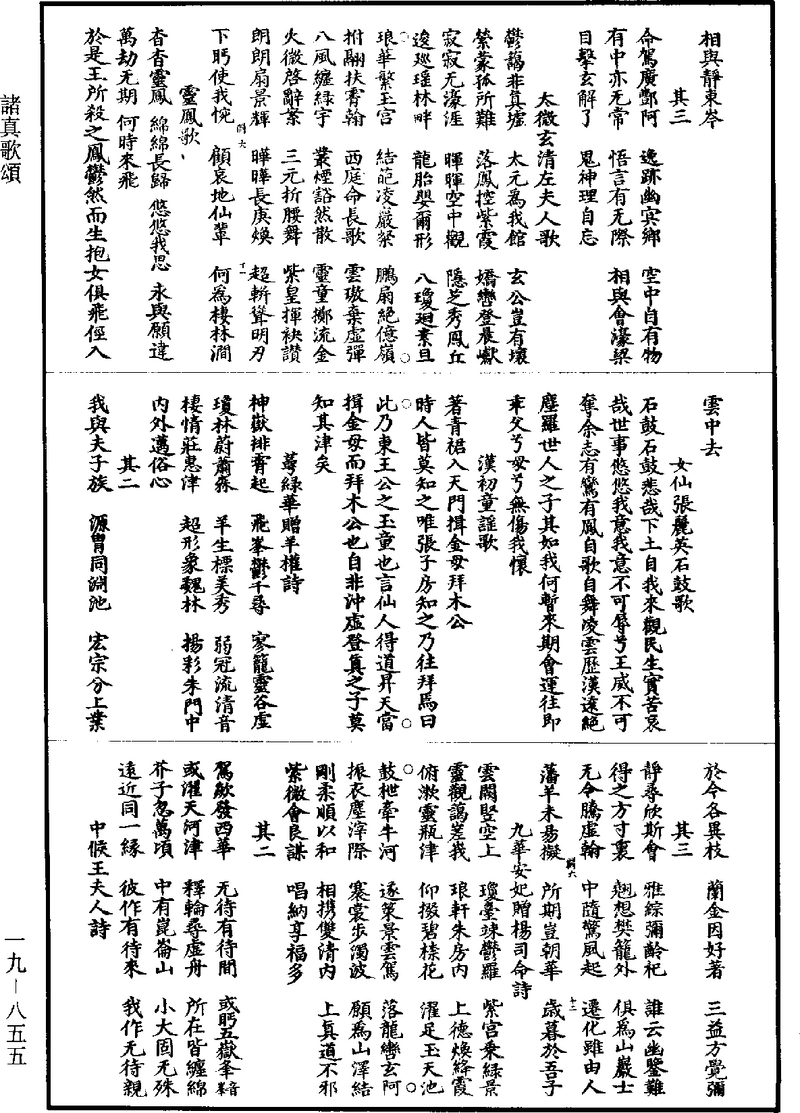 相與靜東岑
其三
命駕廣酆阿　逸跡幽冥鄉　空中自有物
有中亦无常　悟言有无際　相與會濠梁
目擊玄解了　鬼神理自忘
太微玄清左夫人歌
鬱藹非真墟　太元為我館　玄公豈有壞
縈蒙孤所難　落鳳控紫霞　矯轡登晨巘
寂寂无濠涯　暉暉空中觀　隱芝秀鳳丘
逡巡瑤林畔　龍胎嬰爾形　八瓊迴素旦
琅華繁玉宮　結葩凌巖粲　鵬扇絕億嶺
拊翮扶霄翰　西庭命長歌　雲璈乘虛彈
八風纏綠宇　叢煙豁然散　靈童擲流金
火微啓辭案　三元折腰舞　紫皇揮袂讚
朗朗扇景輝　曄曄長庚煥　超軿聳明刃
下眄使我惋　顧哀地仙輩　何為棲林澗
靈鳳歌
杳杳靈鳳　綿綿長歸　悠悠我思　永與願違
萬劫无期　何時來飛
於是王所殺之鳳鬱然而生抱女俱飛俓入
雲中去
女仙張麗英石鼓歌
石鼓石鼓悲哉下土自我來觀民生實苦哀
哉世事悠悠我意我意不可辱兮王威不可
奪余志有鸞有鳳自歌自舞凌雲歷漢遠絕
塵羅世人之子其如我何暫來期會運往即
乖父兮母兮無傷我懷
漢初童謠歌
著青裙入天門揖金母拜木公
時人皆莫知之唯張子房知之乃往拜焉曰
此乃東王公之玉童也言仙人得道昇天當
揖金母而拜木公也自非沖虛登真之子莫
知其津矣
萼綠華贈羊權詩
神嶽排霄起　飛峯鬱千尋　寥籠靈谷虛
瓊林蔚蕭森　羊生標美秀　弱冠流清音
棲情莊惠津　超形象魏林　揚彩朱門中
內外邁俗心
其二
我與夫子族　源胄同淵池　宏宗分上業
於今各異枝　蘭金因好著　三益方覺彌
其三
靜尋欣斯會　雅綜彌齡祀　誰云幽鑒難
得之方寸裏　翹想樊籠外　俱為山巖士
无令騰虛翰　中隨驚風起　遷化雖由人
藩羊未易擬　所期豈朝華　歲暮於吾子
九華安妃贈楊司命詩
雲闕豎空上　瓊臺竦鬱羅　紫宮乘綠景
靈觀藹嵳我　琅軒朱房內　上德煥絳霞
俯漱靈瓶津　仰掇碧㮈花　濯足玉天池
鼓枻牽牛河　遂策景雲駕　落龍轡玄阿
振衣塵滓際　褰裳步濁波　願為山澤結
剛柔順以和　相攜雙清內　上真道不邪
紫微會良謀　唱納享福多
其二
駕欻發西華　无待有待間　或眄五嶽峯
或濯天河津　釋輪尋虛舟　所在皆纏綿
芥子忽萬頃　中有崑崙山　小大固无殊
遠近同一緣　彼作有待來　我作无待親
中候王夫人詩
諸真歌頌
一九－八五五